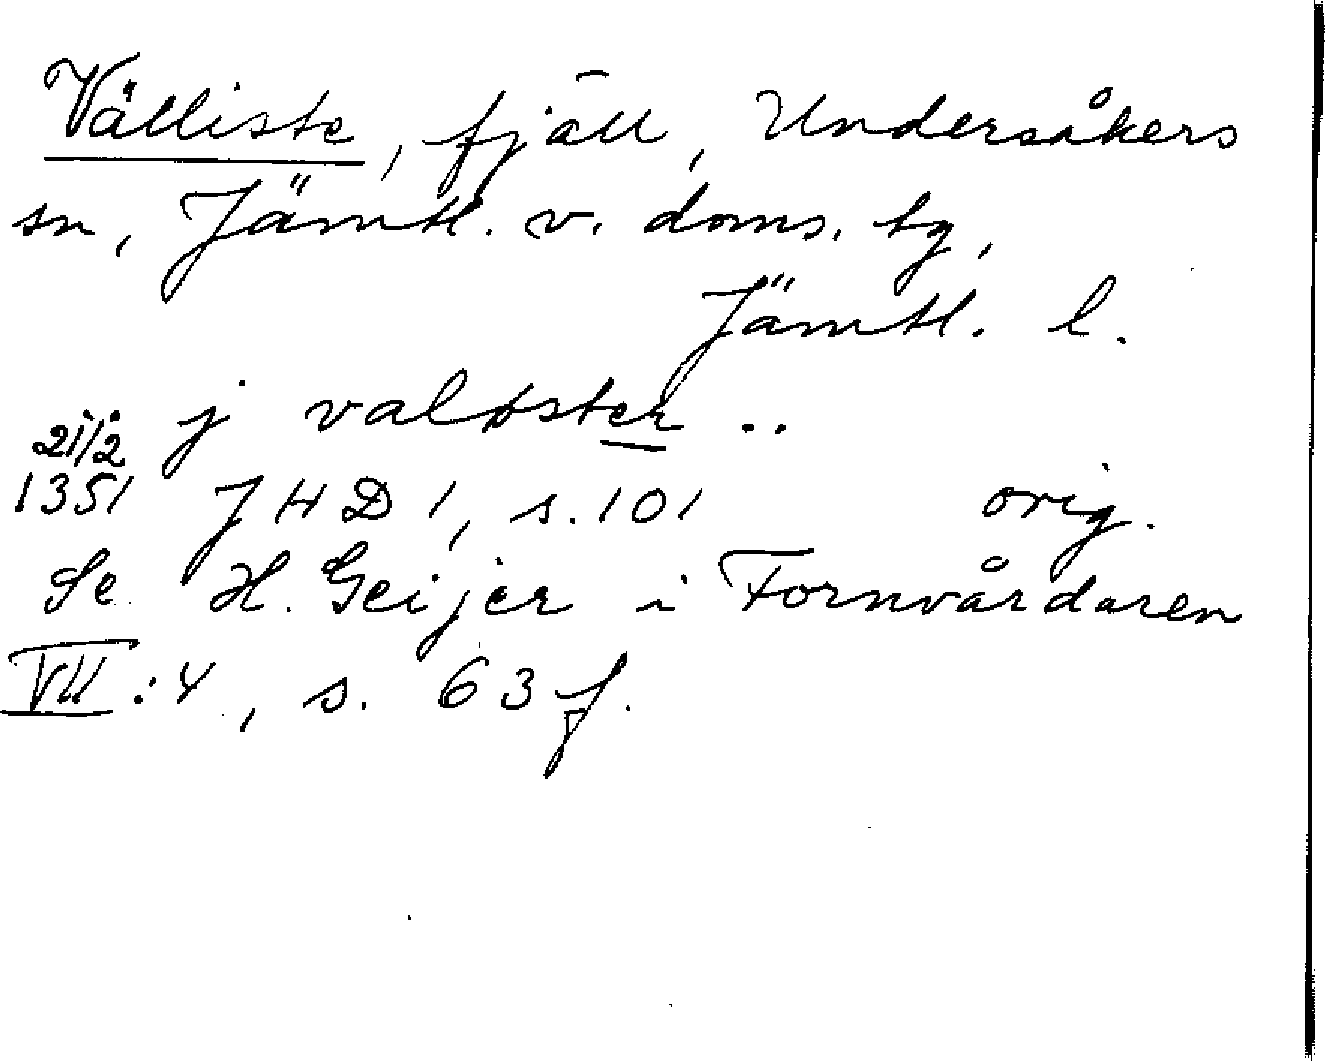 Välliste, fjäll, Undersåkers
sn, Jämtl. v. doms. tg,
Jämtl. l.
j valøster ..
21/2
1351 JHD 1, s. 101 orig.
Se H. Geijer i Fornvårdaren
VII:4, s. 63 f.